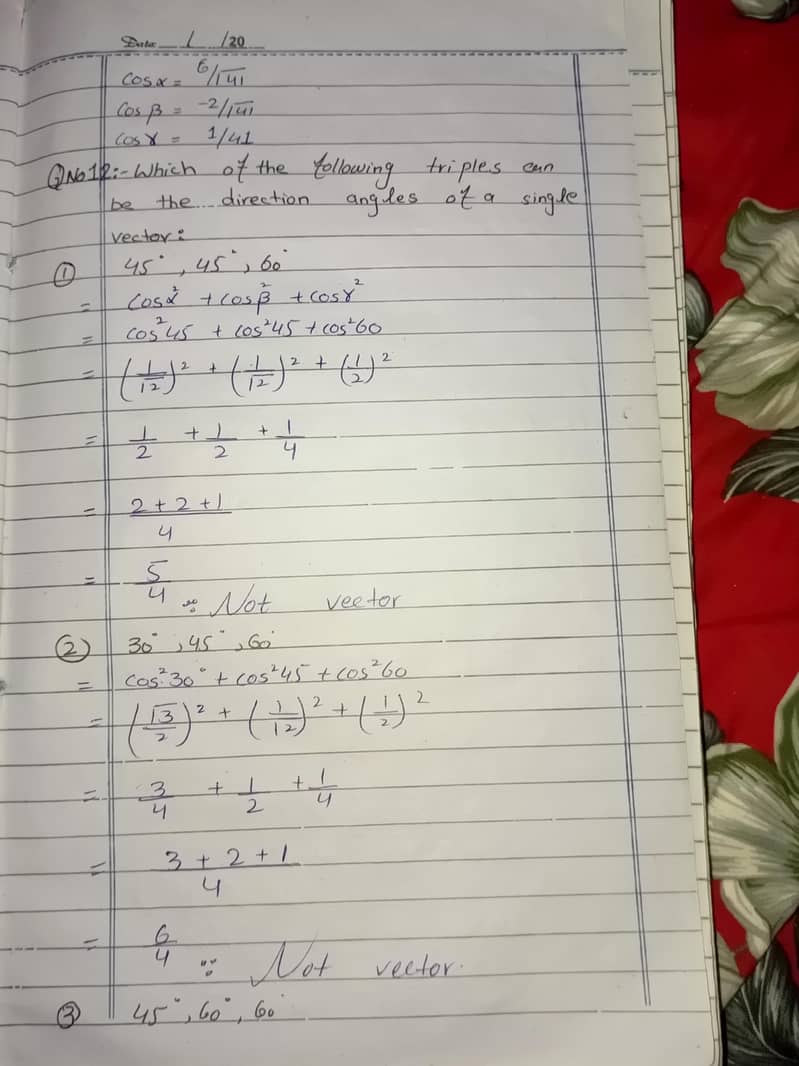 Date / /20
Cosα = 6/√41
Cos β = -2/√41
Cosγ = 1/41
QNo12:- Which of the following triples can
be the direction angles of a single
vector:
① 45°, 45°, 60°
= Cosα² + cosβ² + cosγ²
= cos²45 + cos²45 + cos²60
= (1/√2)² + (1/√2)² + (1/2)²
= 1/2 + 1/2 + 1/4
= 2+2+1/4
= 5/4 ∵ Not vector
② 30°, 45°, 60°
= cos²30° + cos²45 + cos²60
= (√3/2)² + (1/√2)² + (1/2)²
= 3/4 + 1/2 + 1/4
= 3+2+1/4
= 6/4 ∵ Not vector.
③ 45°, 60°, 60°